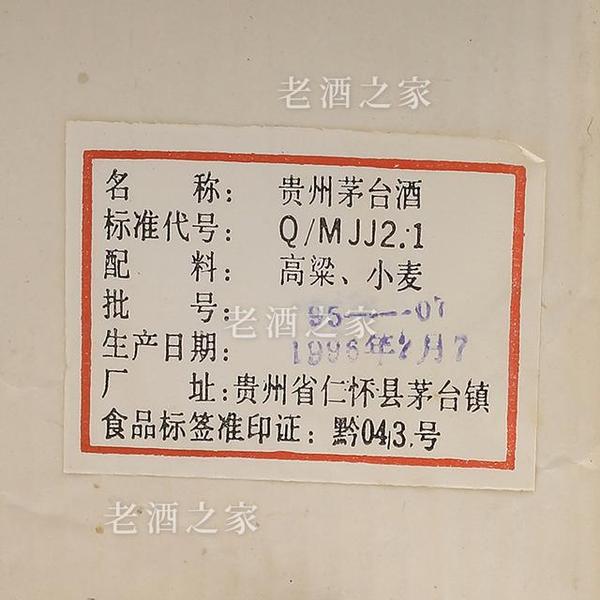 老酒之家
名 称: 贵州茅台酒
标准代号: Q/MJJ2.1
配 料: 高粱、小麦
批 号: 95——07
老酒之家
生产日期: 1996年2月7
厂 址:贵州省仁怀县茅台镇
食品标签准印证: 黔04/3.号
老酒之家